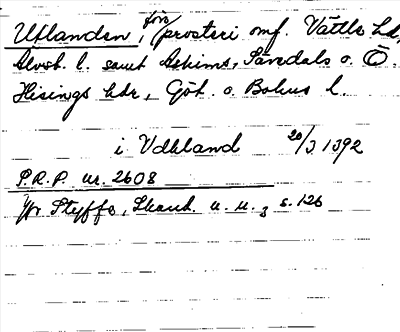 Utlanden, förr prosteri omf. Vättle hd,
Älvsb. l. samt Askims, Sävedals o. Ö.
Hisings hdr, Göt. o. Bohus l.
i Vdhland 20/3 1392
P.R.P. nr. 2608
Jfr Styffe, Skand. u. u. 3 s. 126